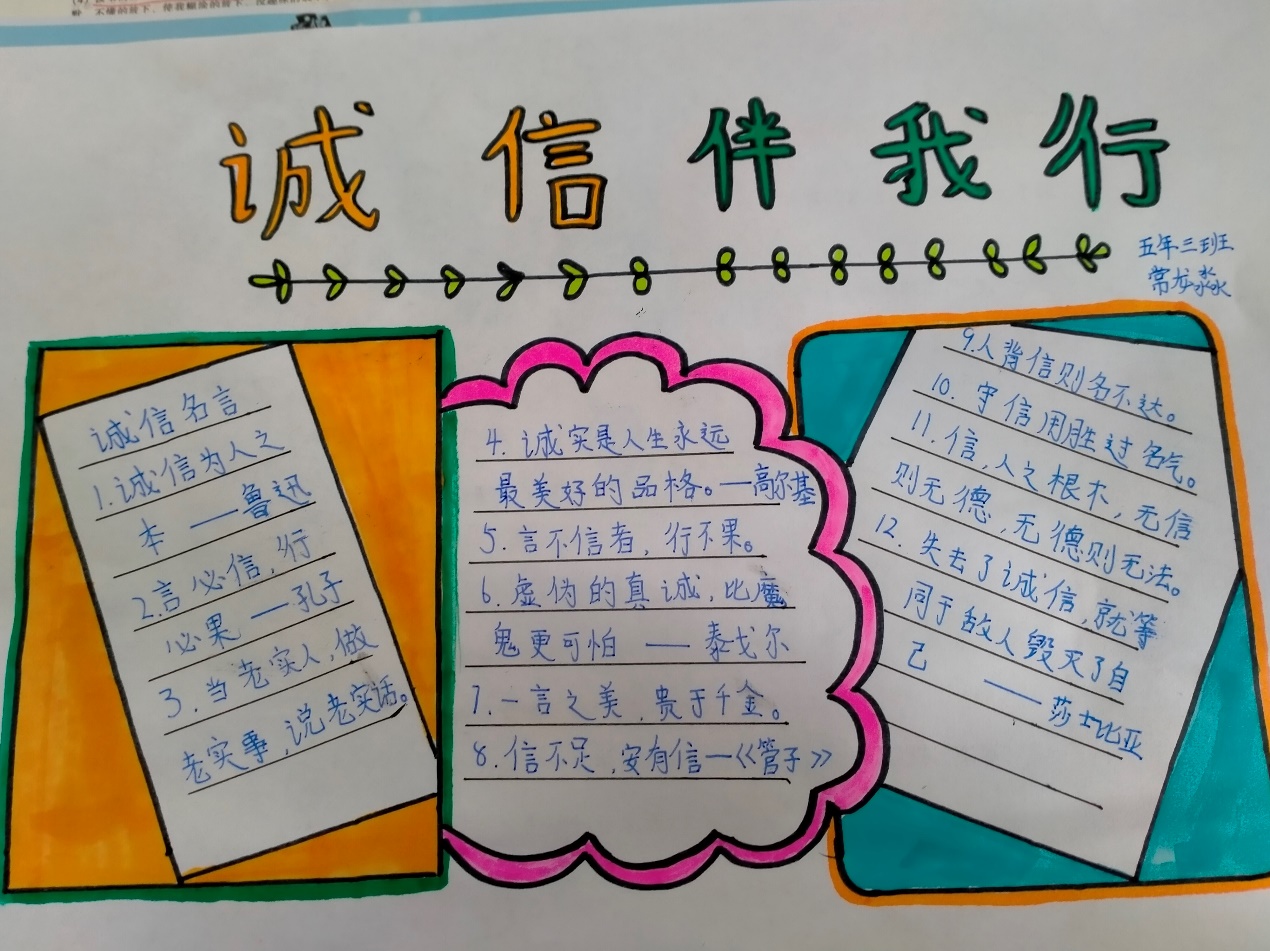 诚信伴我行
五年三班
常龙淼
诚信名言
1.诚信为人之
本 ——鲁迅
2.言必信,行
必果 —孔子
3.当老实人,做
老实事,说老实话。
4.诚实是人生永远
最美好的品格。—高尔基
5.言不信者,行不果。
6.虚伪的真诚,比魔
鬼更可怕 —— 泰戈尔
7.一言之美,贵于千金。
8.信不足,安有信—《管子》
9.人背信则名不达。
10.守信用胜过名气。
11.信,人之根木,无信
则无德,无德则无法。
12.失去了诚信,就等
同于敌人毁灭了自
己 ——莎士比亚